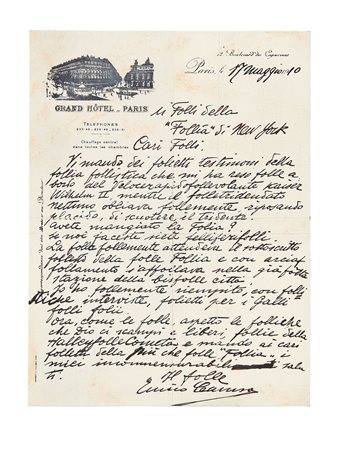 12 Boulevard des Capucines
Paris, le 17 maggio 10
GRAND HÔTEL - PARIS
TELEPHONES
Chauffage central
dans toutes les chambres
Ai Folli della
"Follia" di New York
Cari Folli.
Vi mando dei folietti testimoni della
follia follettica che mi ha reso folle a
bordo del
Wilhelm II, mentre il folletridentato
nettuno obliava follemente, riposando
placido, di scuotere il tridente.
Avete mangiato la folia?
se noi faceste siete fellifenifolli.
La folla follemente attendeva il sottoscritto
folletto della folle Follia e con
follamente s'affollava nella già
stazione della bisfolle città.
Io ho follemente riempito, con folli-
che interviste, folietti per i Galli
folli folii.
Ora, come le folle, aspetto le folliche
che Dio ci scampi e liberi, follie della
Halleyfollecometa e mando ai cari
folletti della più che folle "Follia", i
miei innommenurabili salu
ti.
Il folle
Enrico Caruso